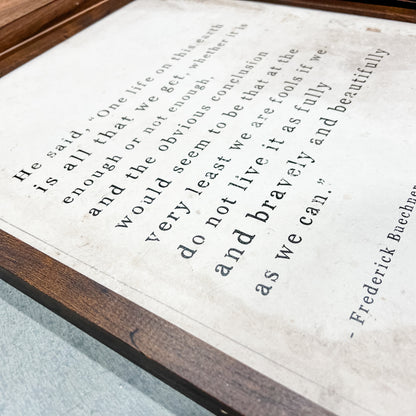 He said, "One life on this earth
is all that we get, whether it is
enough or not enough,
and the obvious conclusion
would seem to be that at the
very least we are fools if we
do not live it as fully
and bravely and beautifully
as we can."
- Frederick Buechner